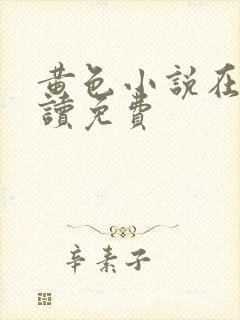 黄色小説在
讀免費
辛素子